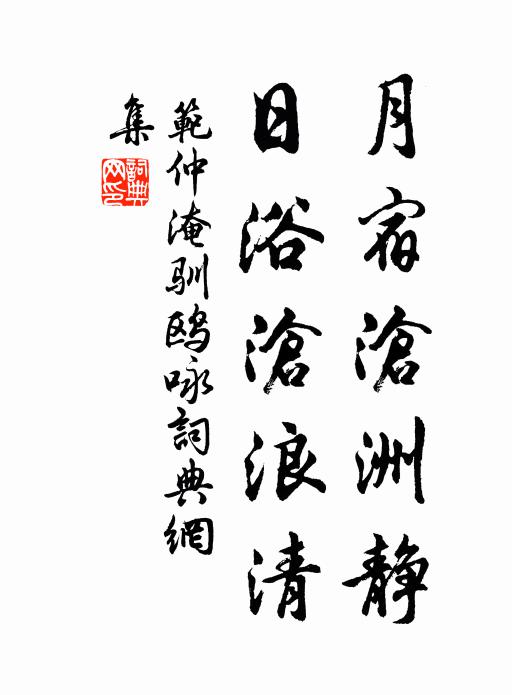 月宿滄洲静
日浴滄浪清
範仲淹馴鸥咏詞典網
集
詞典網印